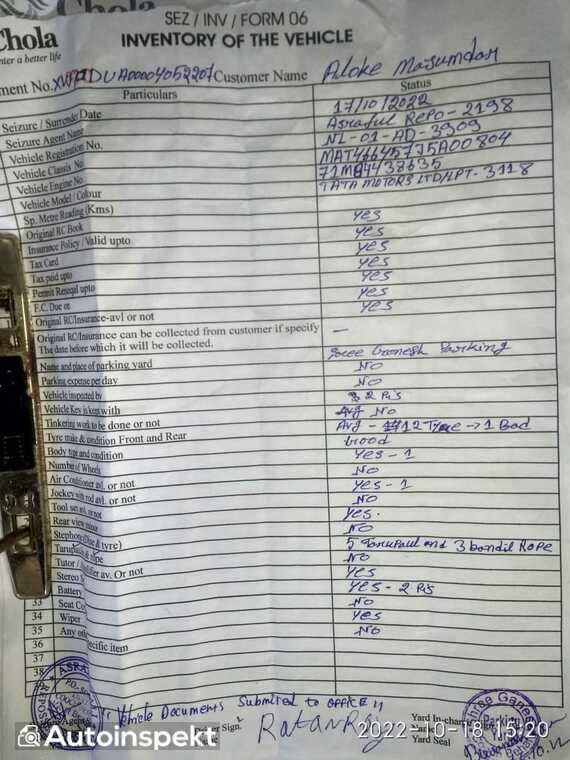 Chola
Chola
Enter a better life
SEZ / INV / FORM 06
INVENTORY OF THE VEHICLE
ment No. Customer Name Aloke Majumdar
Particulars Status
Seizure / Surrender Date 17/10/2022
Seizure Agent Name Asraful Repo - 2198
Vehicle Registration No. NL-01-AD-3909
Vehicle Chassis No.
Vehicle Engine No.
Vehicle Model / Colour TATA MOTORS LTD/LPT-3118
Sp. Metre Reading (Kms)
Original RC Book Yes
Insurance Policy / Valid upto Yes
Tax Card Yes
Tax paid upto Yes
Permit Renewal upto Yes
F.C. Due on Yes
Original RC/Insurance-avl or not Yes
Original RC/Insurance can be collected from customer if specify
The date before which it will be collected. —
Name and place of parking yard Sree Ganesh Parking
Parking expense per day No
Vehicle inspected by No
Vehicle Key is kept with 2 Pis
Tinkering work to be done or not No
Tyre make & condition Front and Rear Avg - 12 Tyre → 1 Bad
Body type and condition Good
Number of Wheels Yes - 1
Air Conditioner avl. or not No
Jockey with rod avl. or not Yes - 1
Tool set avl. or not No
Rear view mirror Yes.
Stephony (Disc & tyre) No
Tarupaulin & rope 5 Tarupaul and 3 bandil Rope
Tutor / Amplifier av. Or not No
Stereo Yes
Battery Yes - 2 Pis
33 Seat No
34 Wiper Yes
35 Any specific item No
36
37
38
Vehicle Documents Submitted to office
Sign. Ratan Roy
Name
Yard In-charge
Yard Seal
2022-10-18 15:20
Autoinspekt